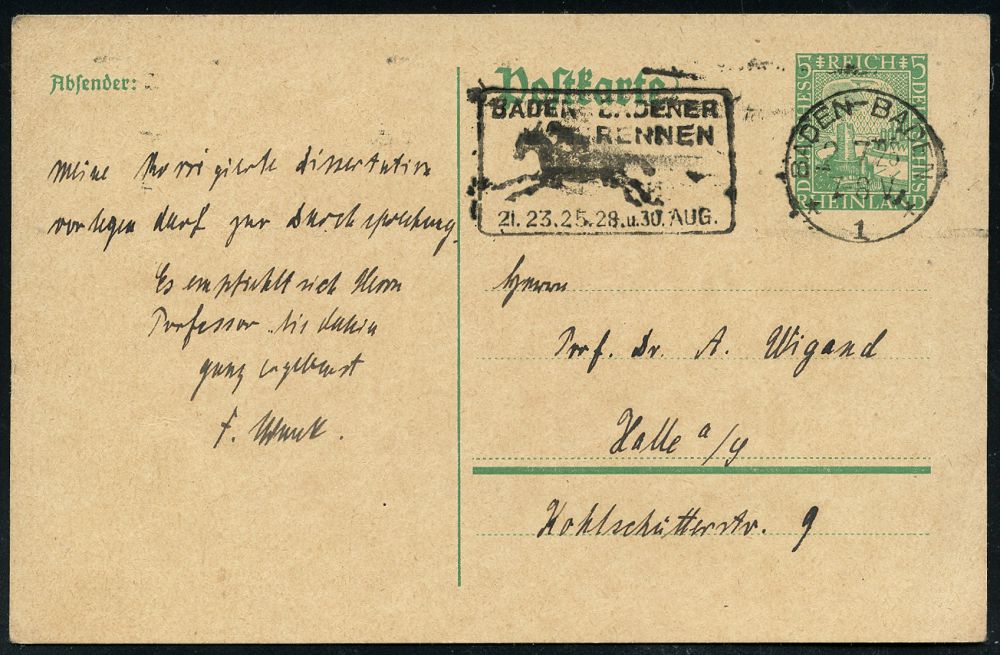 Absender:
Postkarte
BADEN-BADENER
RENNEN
21. 23. 25. 28. u. 30. AUG.
5 REICH 5
RHEINLAND
BADEN-BADEN
* 1 *
Meine korrigierte Dissertation
vorlegen darf zur Durchsprechung.
Es empfiehlt sich Herrn
Professor bis dahin
ganz ergebenst
F.
Herrn
Prof. Dr. A. Wigand
Halle a/S
Kohlschütterstr. 9